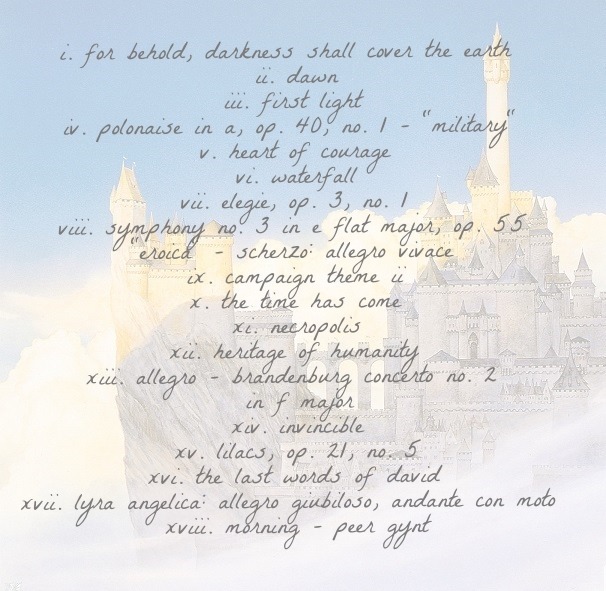 i. for behold, darkness shall cover the earth
ii. dawn
iii. first light
iv. polonaise in a, op. 40, no. 1 - "military"
v. heart of courage
vi. waterfall
vii. elegie, op. 3, no. 1
viii. symphony no. 3 in e flat major, op. 55
"eroica" - scherzo: allegro vivace
ix. campaign theme ii
x. the time has come
xi. necropolis
xii. heritage of humanity
xiii. allegro - brandenburg concerto no. 2
in f major
xiv. invincible
xv. lilacs, op. 21, no. 5
xvi. the last words of david
xvii. lyra angelica: allegro giubiloso, andante con moto
xviii. morning - peer gynt